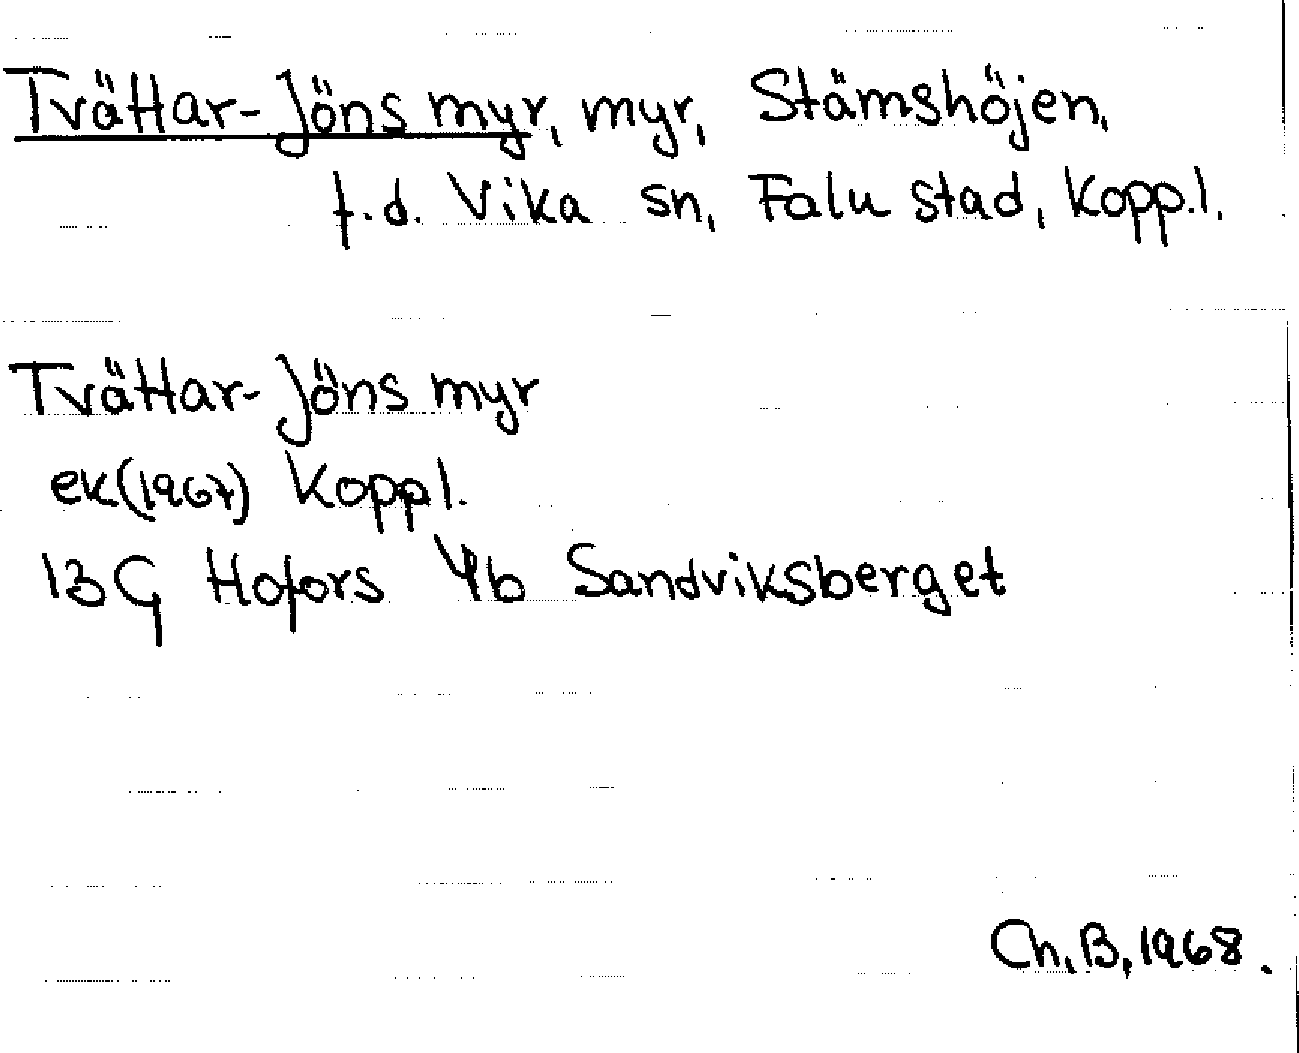 Tvättar-Jöns myr, myr, Stämshöjen,
f.d. Vika sn, Falu stad, Kopp.l.
Tvättar-Jöns myr
ek(1967) Koppl.
13G Hofors 4b Sandviksberget
Ch.B, 1968.